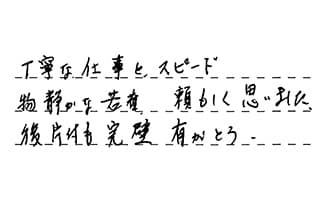 丁寧な仕事と、スピード
物静かな若者 頼もしく思いました、
後片付も 完璧 有がとう.